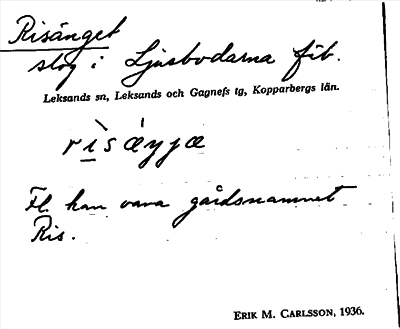 Risänget
slog i Ljusbodarna fäb.
Leksands sn, Leksands och Gagnefs tg, Kopparbergs län.
rìsæ̀ŋjæ
Fl. kan vara gårdsnamnet
Ris.
ERIK M. CARLSSON, 1936.